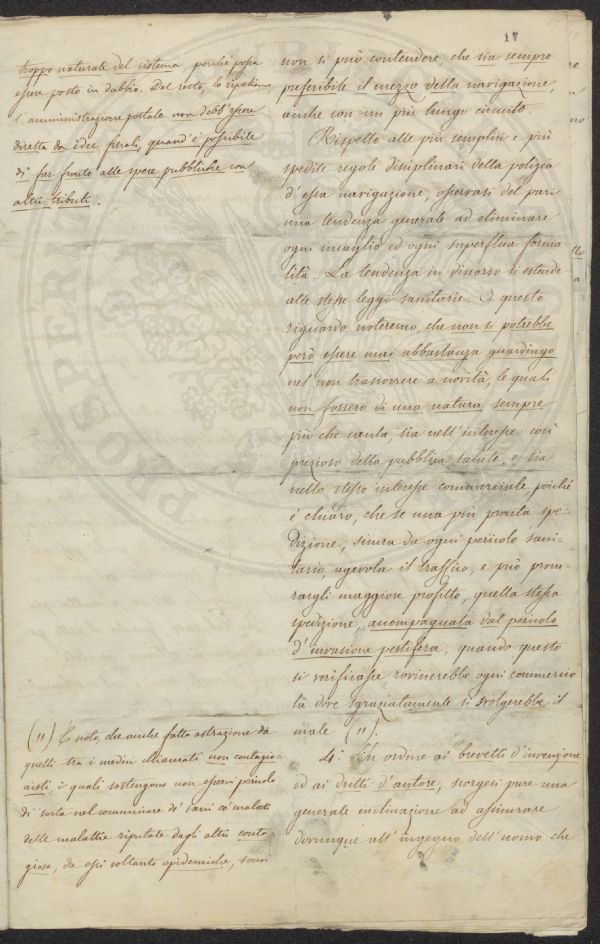 17
troppo naturale del sistema perchè possa
essere posto in dubbio. Del resto, lo ripetiamo
l'amministrazione postale non debb'essere
diretta da idee fiscali, quand'è possibile
di far fronte alle spese pubbliche con
altri tributi.
(11) È noto, che anche fatta astrazione da
quelli tra i medici chiamati non contagio-
nisti, i quali sostengono non esservi pericolo
di sorta nel comunicare de' sani co' malati
delle malattie riputate dagli altri conta-
giose, da essi soltanto epidemiche, sonvi
non si può contendere, che sia sempre
preferibile il mezzo della navigazione,
anche con un più lungo circuito.
Rispetto alle più semplici e più
spedite regole disciplinari della polizia
d'essa navigazione, osservasi del pari
una tendenza generale ad eliminare
ogni inciaglio ed ogni superflua forma
lità. La tendenza in discorso si estende
alle stesse leggi sanitarie. A questo
riguardo noteremo, che non si potrebbe
però essere mai abbastanza guardingo
nel non trascorrere a novità, le quali
non fossero di una natura sempre
più che cauta, sia nell'interesse così
prezioso della pubblica salute, e sia
nello stesso interesse commerciale, poichè
è chiaro, che se una più pronta spe-
dizione, sicura da ogni pericolo sani-
tario, agevola il traffico, e può procu-
rargli maggiore profitto, quella stessa
spedizione, accompagnata dal pericolo
d'invasione pestifera, quando questo
si verificasse rovinerebbe ogni commercio
là dove sgraziatamente si svolgerebbe il
male (11).
4° In ordine ai brevetti d'invenzione
ed ai dritti d'autore, sorgesi pure una
generale inclinazione ad assicurare
dovunque all'ingegno dell'uomo che